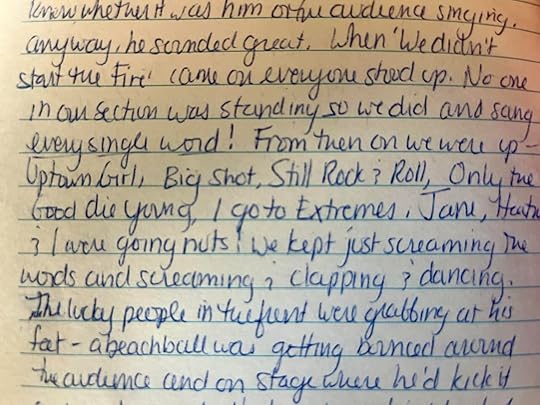 know whether it was him or the audience singing.
anyway, he sounded great. When 'We didn't
start the Fire' came on everyone stood up. No one
in our section was standing so we did and sang
every single word! From then on we were up -
Uptown Girl, Big Shot, Still Rock & Roll, Only the
Good die young, I go to Extremes. Jane,
& I were going nuts! We kept just screaming the
words and screaming & clapping & dancing.
The lucky people in the front were grabbing at his
feet - a beachball was getting bounced around
the audience and on stage where he'd kick it